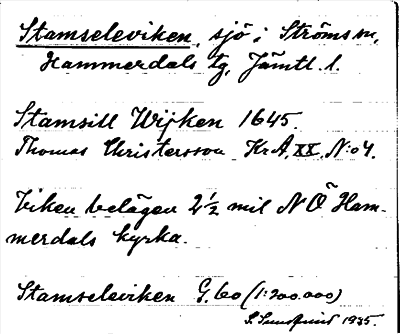 Stamseleviken, sjö i Ströms sn,
Hammerdals tg, Jämtl. l.
Stamsill Wijken 1645.
Thomas Christersson Kr.A, XX, N:o 4.
Viken belägen 2 1/2 mil N Ö Ham-
merdals kyrka.
Stamseleviken G. 60 (1:200.000)
1935